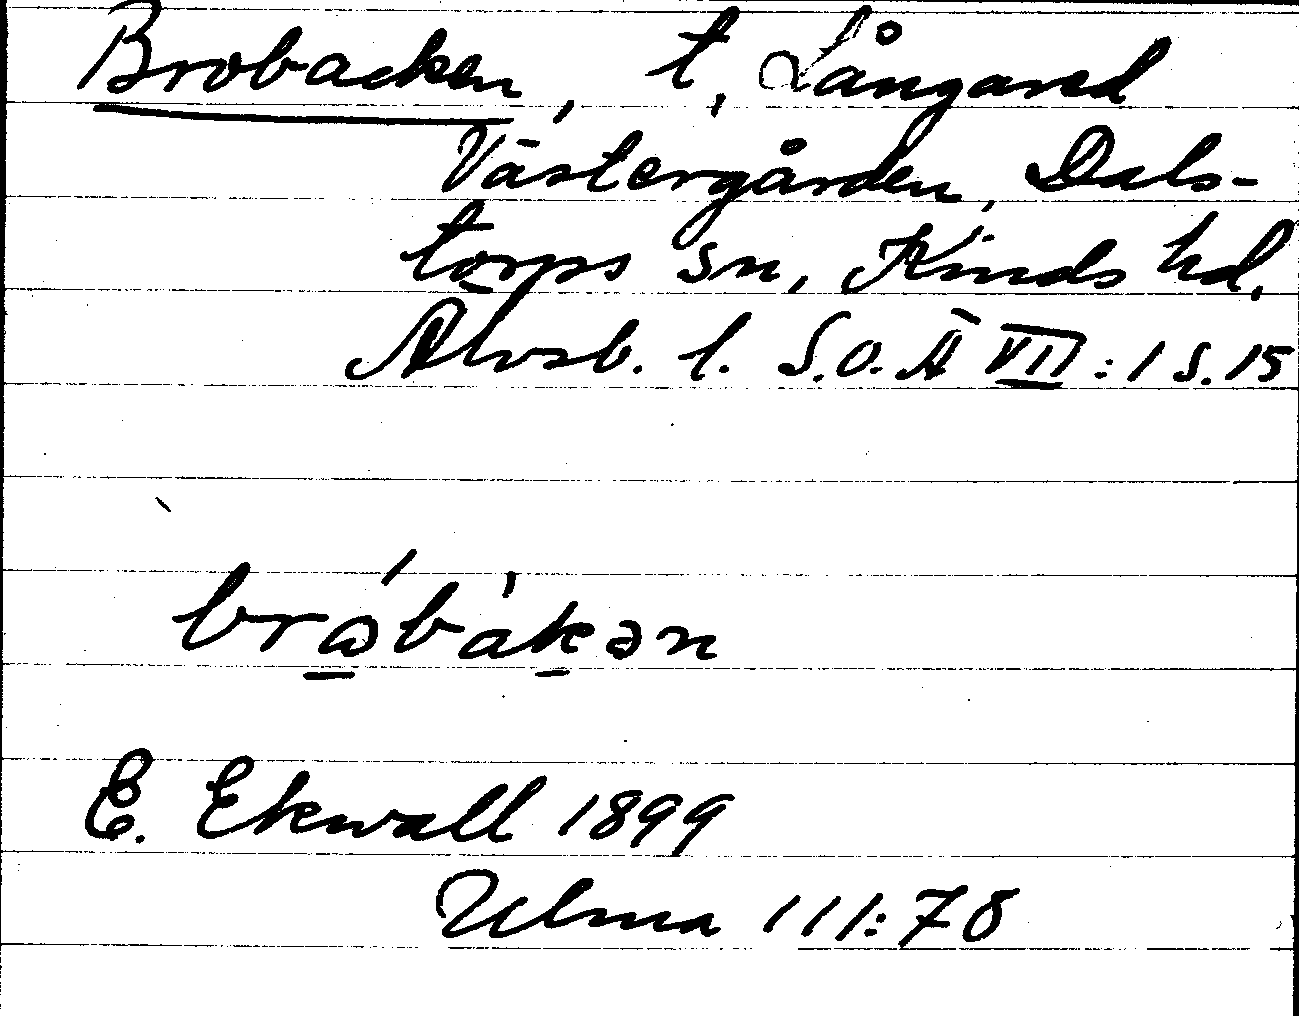 Brobacken, t, Långared
Västergården, Dals-
torps sn, Kinds hd.
Älvsb. l. S.O.Ä VII: 1 s. 15
brώ̲bàk̲ən
E. Ekwall 1899
Ulma 111:78